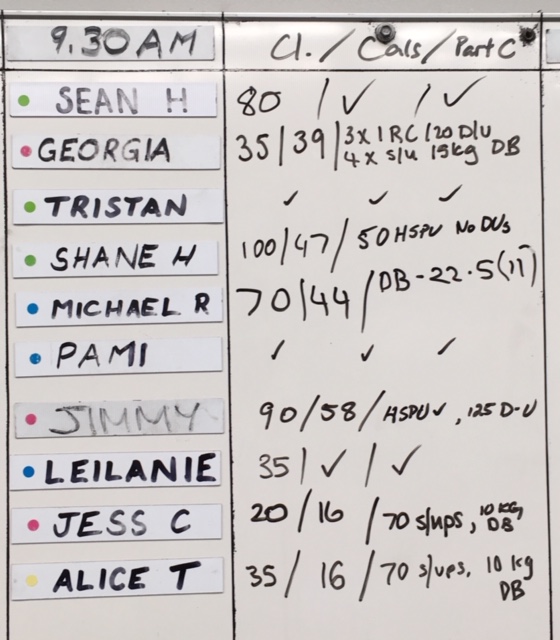 9.30AM Cl. / Cals / Part C
SEAN H 80 / ✓ / ✓
GEORGIA 35 / 39 / 3 x 1 RC / 20 D/U
4 x s/u 15kg DB
TRISTAN ✓ ✓ ✓
SHANE H 100 / 47 / 50 HSPU No DUs
MICHAEL R 70 / 44 / DB - 22.5 (11)
PAMI ✓ ✓ ✓
JIMMY 90 / 58 / HSPU ✓, 125 D-U
LEILANIE 35 / ✓ / ✓
JESS C 20 / 16 / 70 s/ups, 10 kg
DB
ALICE T 35 / 16 / 70 s/ups, 10 kg
DB